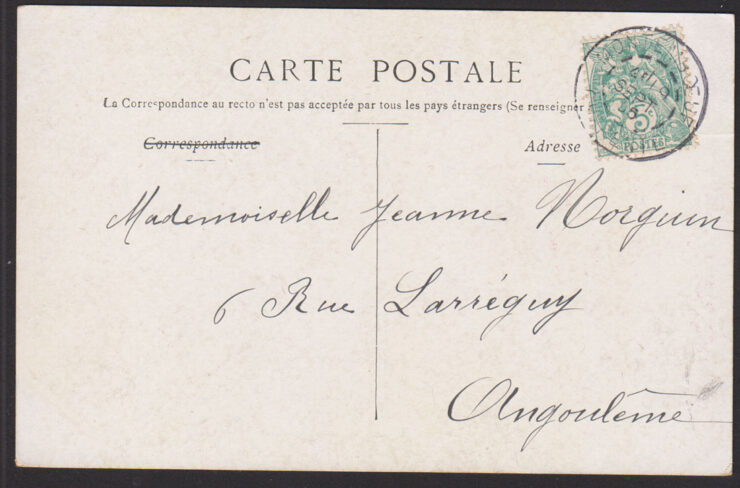 CARTE POSTALE
La Correspondance au recto n'est pas acceptée par tous les pays étrangers (Se renseigner
Correspondance
Adresse
5
POSTES
Mademoiselle Jeanne Norguin
6 Rue Larréguy
Angoulême